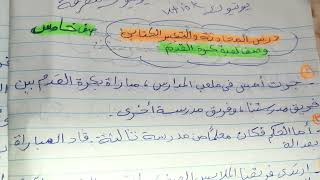 درس المحادثة والتعبير الكتابي
صف خامس
وصف لعبة كرة القدم
جرت أمس في ملعب المدارس، مباراة بكرة القدم بين
فريق مدرستنا، وفريق مدرسة أخرى.
أما الحكم فكان معلماً من مدرسة ثالثة. قاد المباراة
بعدالة
ارتدى فريقنا الملابس